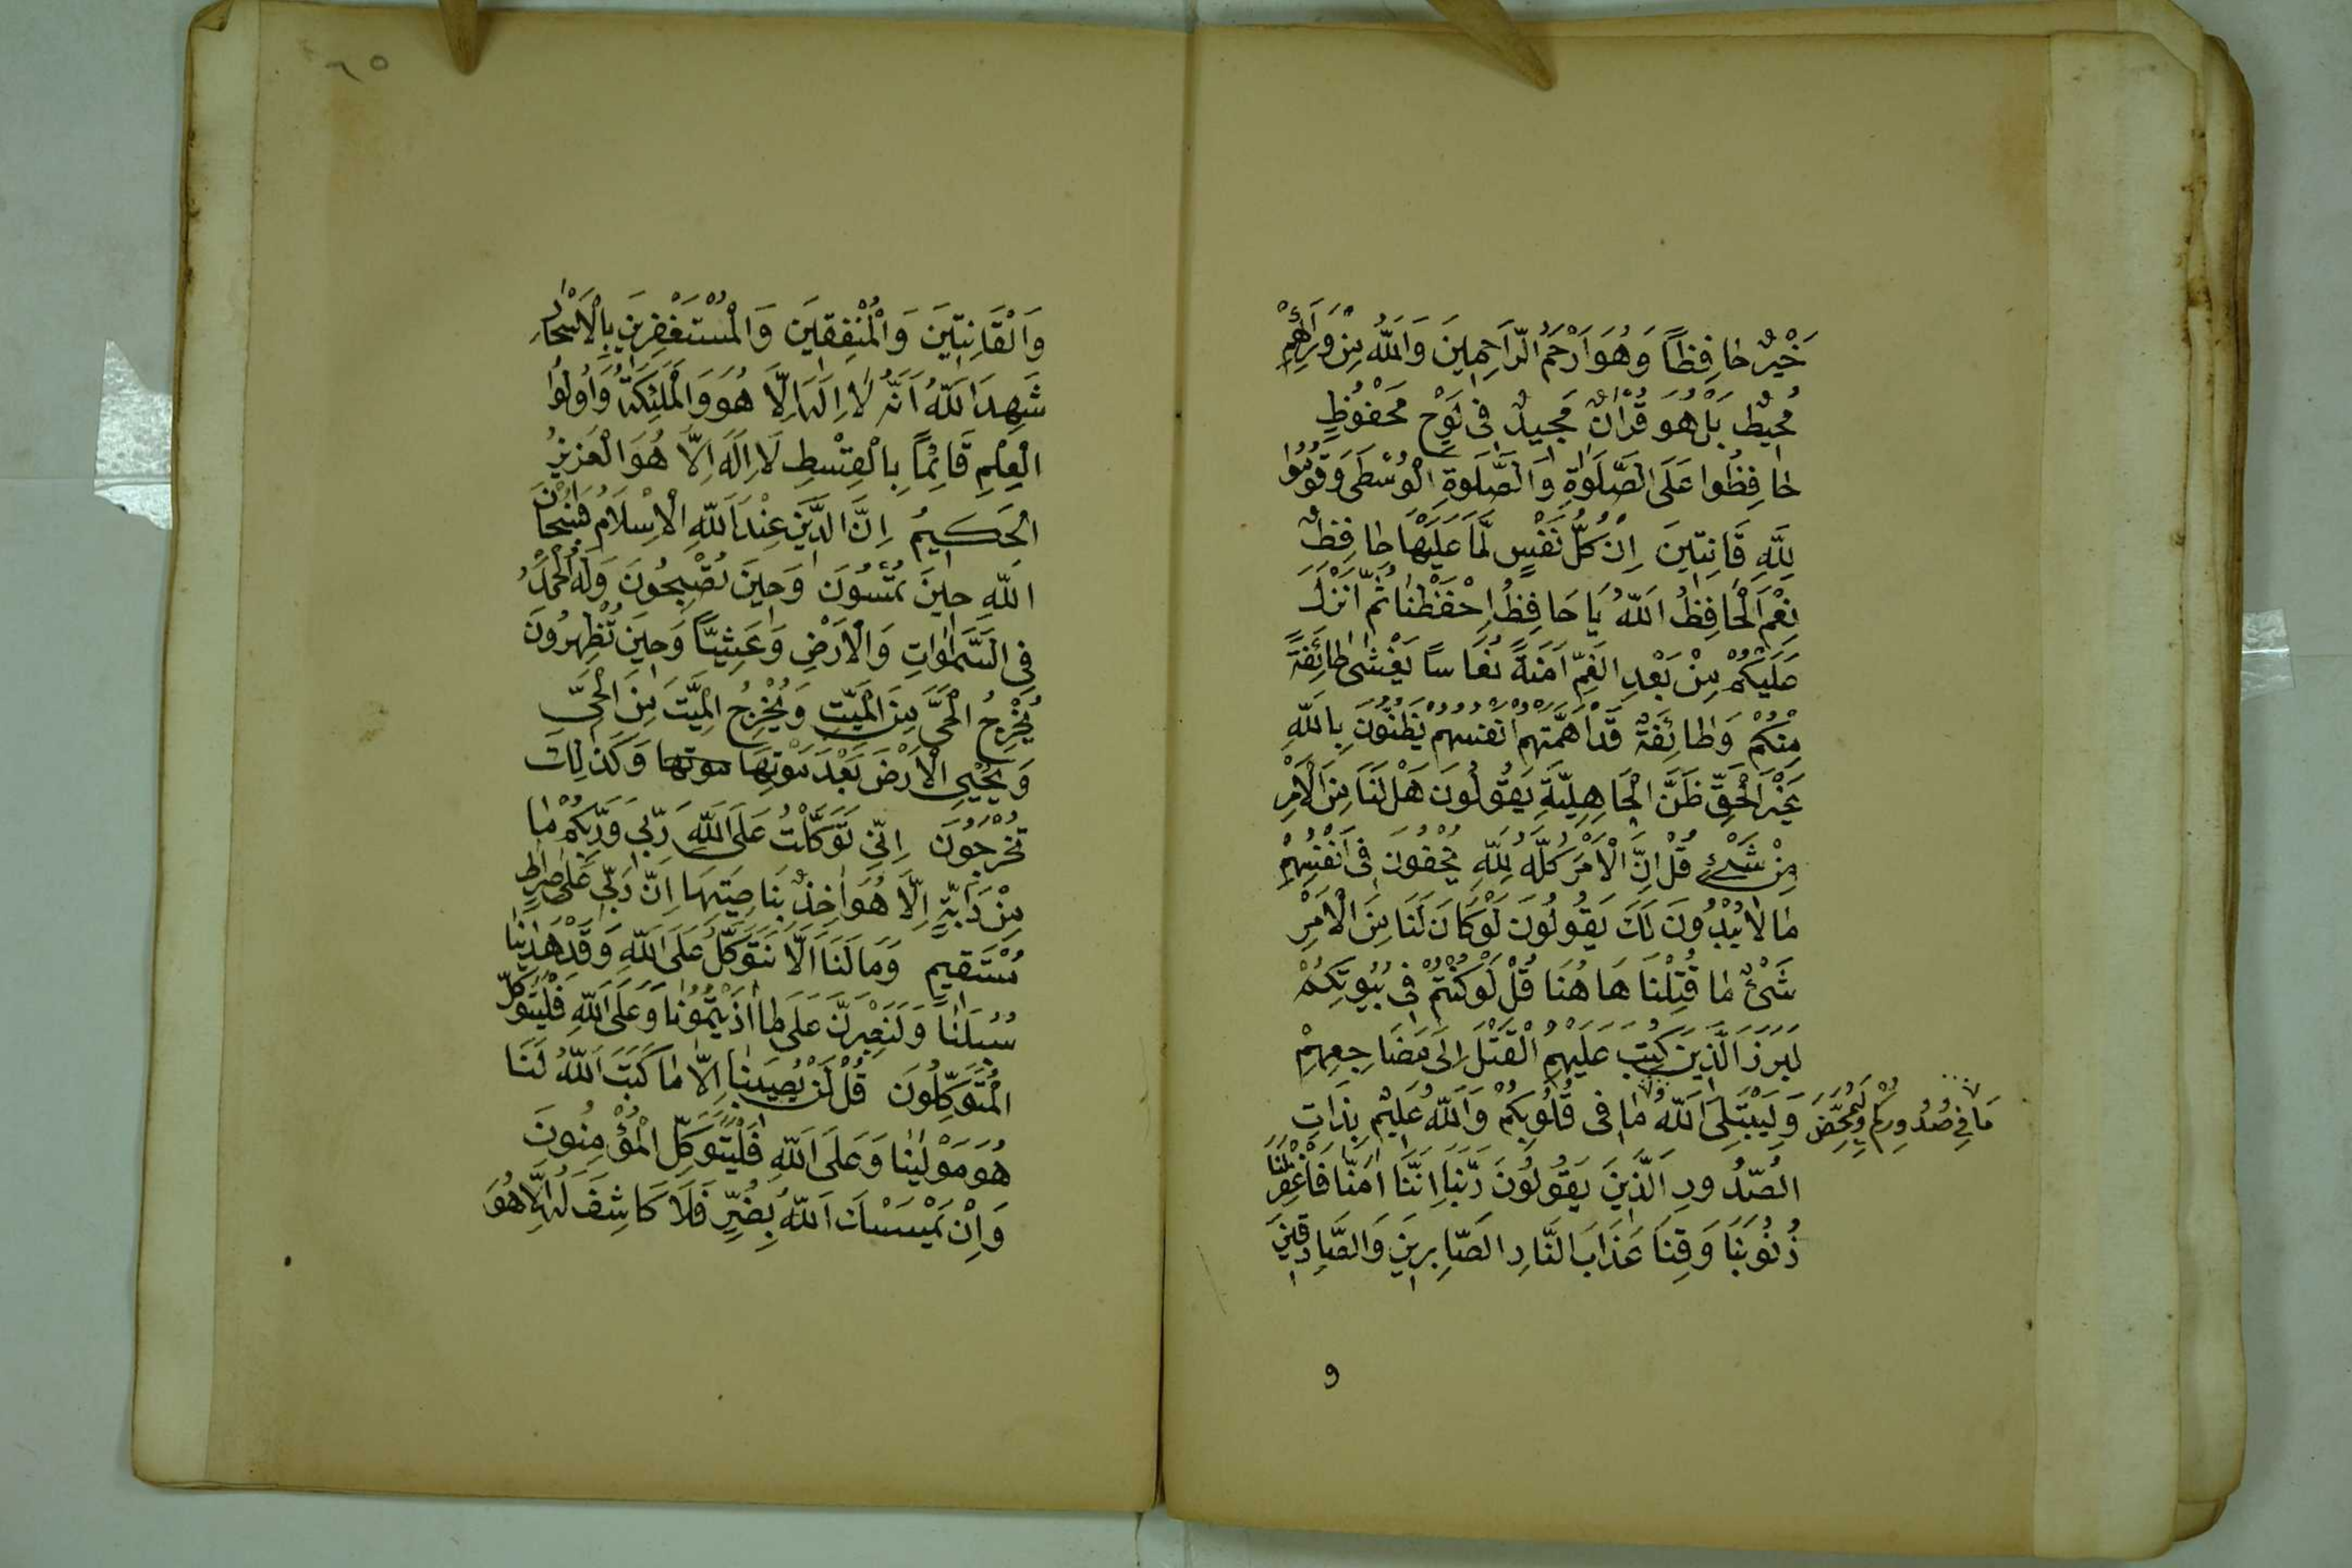 خَيْرٌ حَافِظًا وَهُوَ اَرْحَمُ الرَّاحِمِينَ وَاللهُ مِنْ وَرَائِهِمْ
مُحِيطٌ بَلْ هُوَ قُرْاٰنٌ مَجِيدٌ فِى لَوْحٍ مَحْفُوظٍ
حَافِظُوا عَلَى الصَّلَوٰةِ وَالصَّلَوٰةِ الْوُسْطَى وَقُومُوا
لِلّٰهِ قَانِتِينَ اِنْ كُلُّ نَفْسٍ لَمَّا عَلَيْهَا حَافِظٌ
نِعْمَ الْحَافِظُ اَللهُ يَا حَافِظُ اِحْفَظْنَا ثُمَّ اَنْزَلَ
عَلَيْكُمْ مِنْ بَعْدِ الْغَمِّ اَمَنَةً نُعَاسًا يَغْشٰى طَائِفَةً
مِنْكُمْ وَطَائِفَةٌ قَدْ اَهَمَّتْهُمْ اَنْفُسُهُمْ يَظُنُّونَ بِاللهِ
غَيْرَ الْحَقِّ ظَنَّ الْجَاهِلِيَّةِ يَقُولُونَ هَلْ لَنَا مِنَ الْاَمْرِ
مِنْ شَىْءٍ قُلْ اِنَّ الْاَمْرَ كُلَّهُ لِلّٰهِ يُخْفُونَ فِى اَنْفُسِهِمْ
مَا لَا يُبْدُونَ لَكَ يَقُولُونَ لَوْ كَانَ لَنَا مِنَ الْاَمْرِ
شَىْءٌ مَا قُتِلْنَا هَاهُنَا قُلْ لَوْ كُنْتُمْ فِى بُيُوتِكُمْ
لَبَرَزَ الَّذِينَ كُتِبَ عَلَيْهِمُ الْقَتْلُ اِلَى مَضَاجِعِهِمْ
وَلِيَبْتَلِىَ اللهُ مَا فِى قُلُوبِكُمْ وَاللهُ عَلِيمٌ بِذَاتِ
مَا فِي صُدُورِكُمْ وَلِيُمَحِّصَ
الصُّدُورِ اَلَّذِينَ يَقُولُونَ رَبَّنَا اِنَّنَا اٰمَنَّا فَاغْفِرْ لَنَا
ذُنُوبَنَا وَقِنَا عَذَابَ النَّارِ الصَّابِرِينَ وَالصَّادِقِينَ
و
٦٥
وَالْقَانِتِينَ وَالْمُنْفِقِينَ وَالْمُسْتَغْفِرِينَ بِالْاَسْحَارِ
شَهِدَ اللهُ اَنَّهُ لَا اِلٰهَ اِلَّا هُوَ وَالْمَلٰئِكَةُ وَاُولُوا
الْعِلْمِ قَائِمًا بِالْقِسْطِ لَا اِلٰهَ اِلَّا هُوَ الْعَزِيزُ
الْحَكِيمُ اِنَّ الدِّينَ عِنْدَ اللهِ الْاِسْلَامُ فَسُبْحَانَ
اللهِ حِينَ تُمْسُونَ وَحِينَ تُصْبِحُونَ وَلَهُ الْحَمْدُ
فِى السَّمٰوَاتِ وَالْاَرْضِ وَعَشِيًّا وَحِينَ تُظْهِرُونَ
يُخْرِجُ الْحَىَّ مِنَ الْمَيِّتِ وَيُخْرِجُ الْمَيِّتَ مِنَ الْحَىِّ
وَيُحْيِى الْاَرْضَ بَعْدَ مَوْتِهَا موتها وَكَذٰلِكَ
تُخْرَجُونَ اِنِّى تَوَكَّلْتُ عَلَى اللهِ رَبِّى وَرَبِّكُمْ مَا
مِنْ دَابَّةٍ اِلَّا هُوَ اٰخِذٌ بِنَاصِيَتِهَا اِنَّ رَبِّى عَلٰى صِرَاطٍ
مُسْتَقِيمٍ وَمَا لَنَا اَلَّا نَتَوَكَّلَ عَلَى اللهِ وَقَدْ هَدٰينَا
سُبُلَنَا وَلَنَصْبِرَنَّ عَلَى مَا اٰذَيْتُمُونَا وَعَلَى اللهِ فَلْيَتَوَكَّلِ
الْمُتَوَكِّلُونَ قُلْ لَنْ يُصِيبَنَا اِلَّا مَا كَتَبَ اللهُ لَنَا
هُوَ مَوْلٰينَا وَعَلَى اللهِ فَلْيَتَوَكَّلِ الْمُؤْمِنُونَ
وَاِنْ يَمْسَسْكَ اللهُ بِضُرٍّ فَلَا كَاشِفَ لَهُ اِلَّا هُوَ